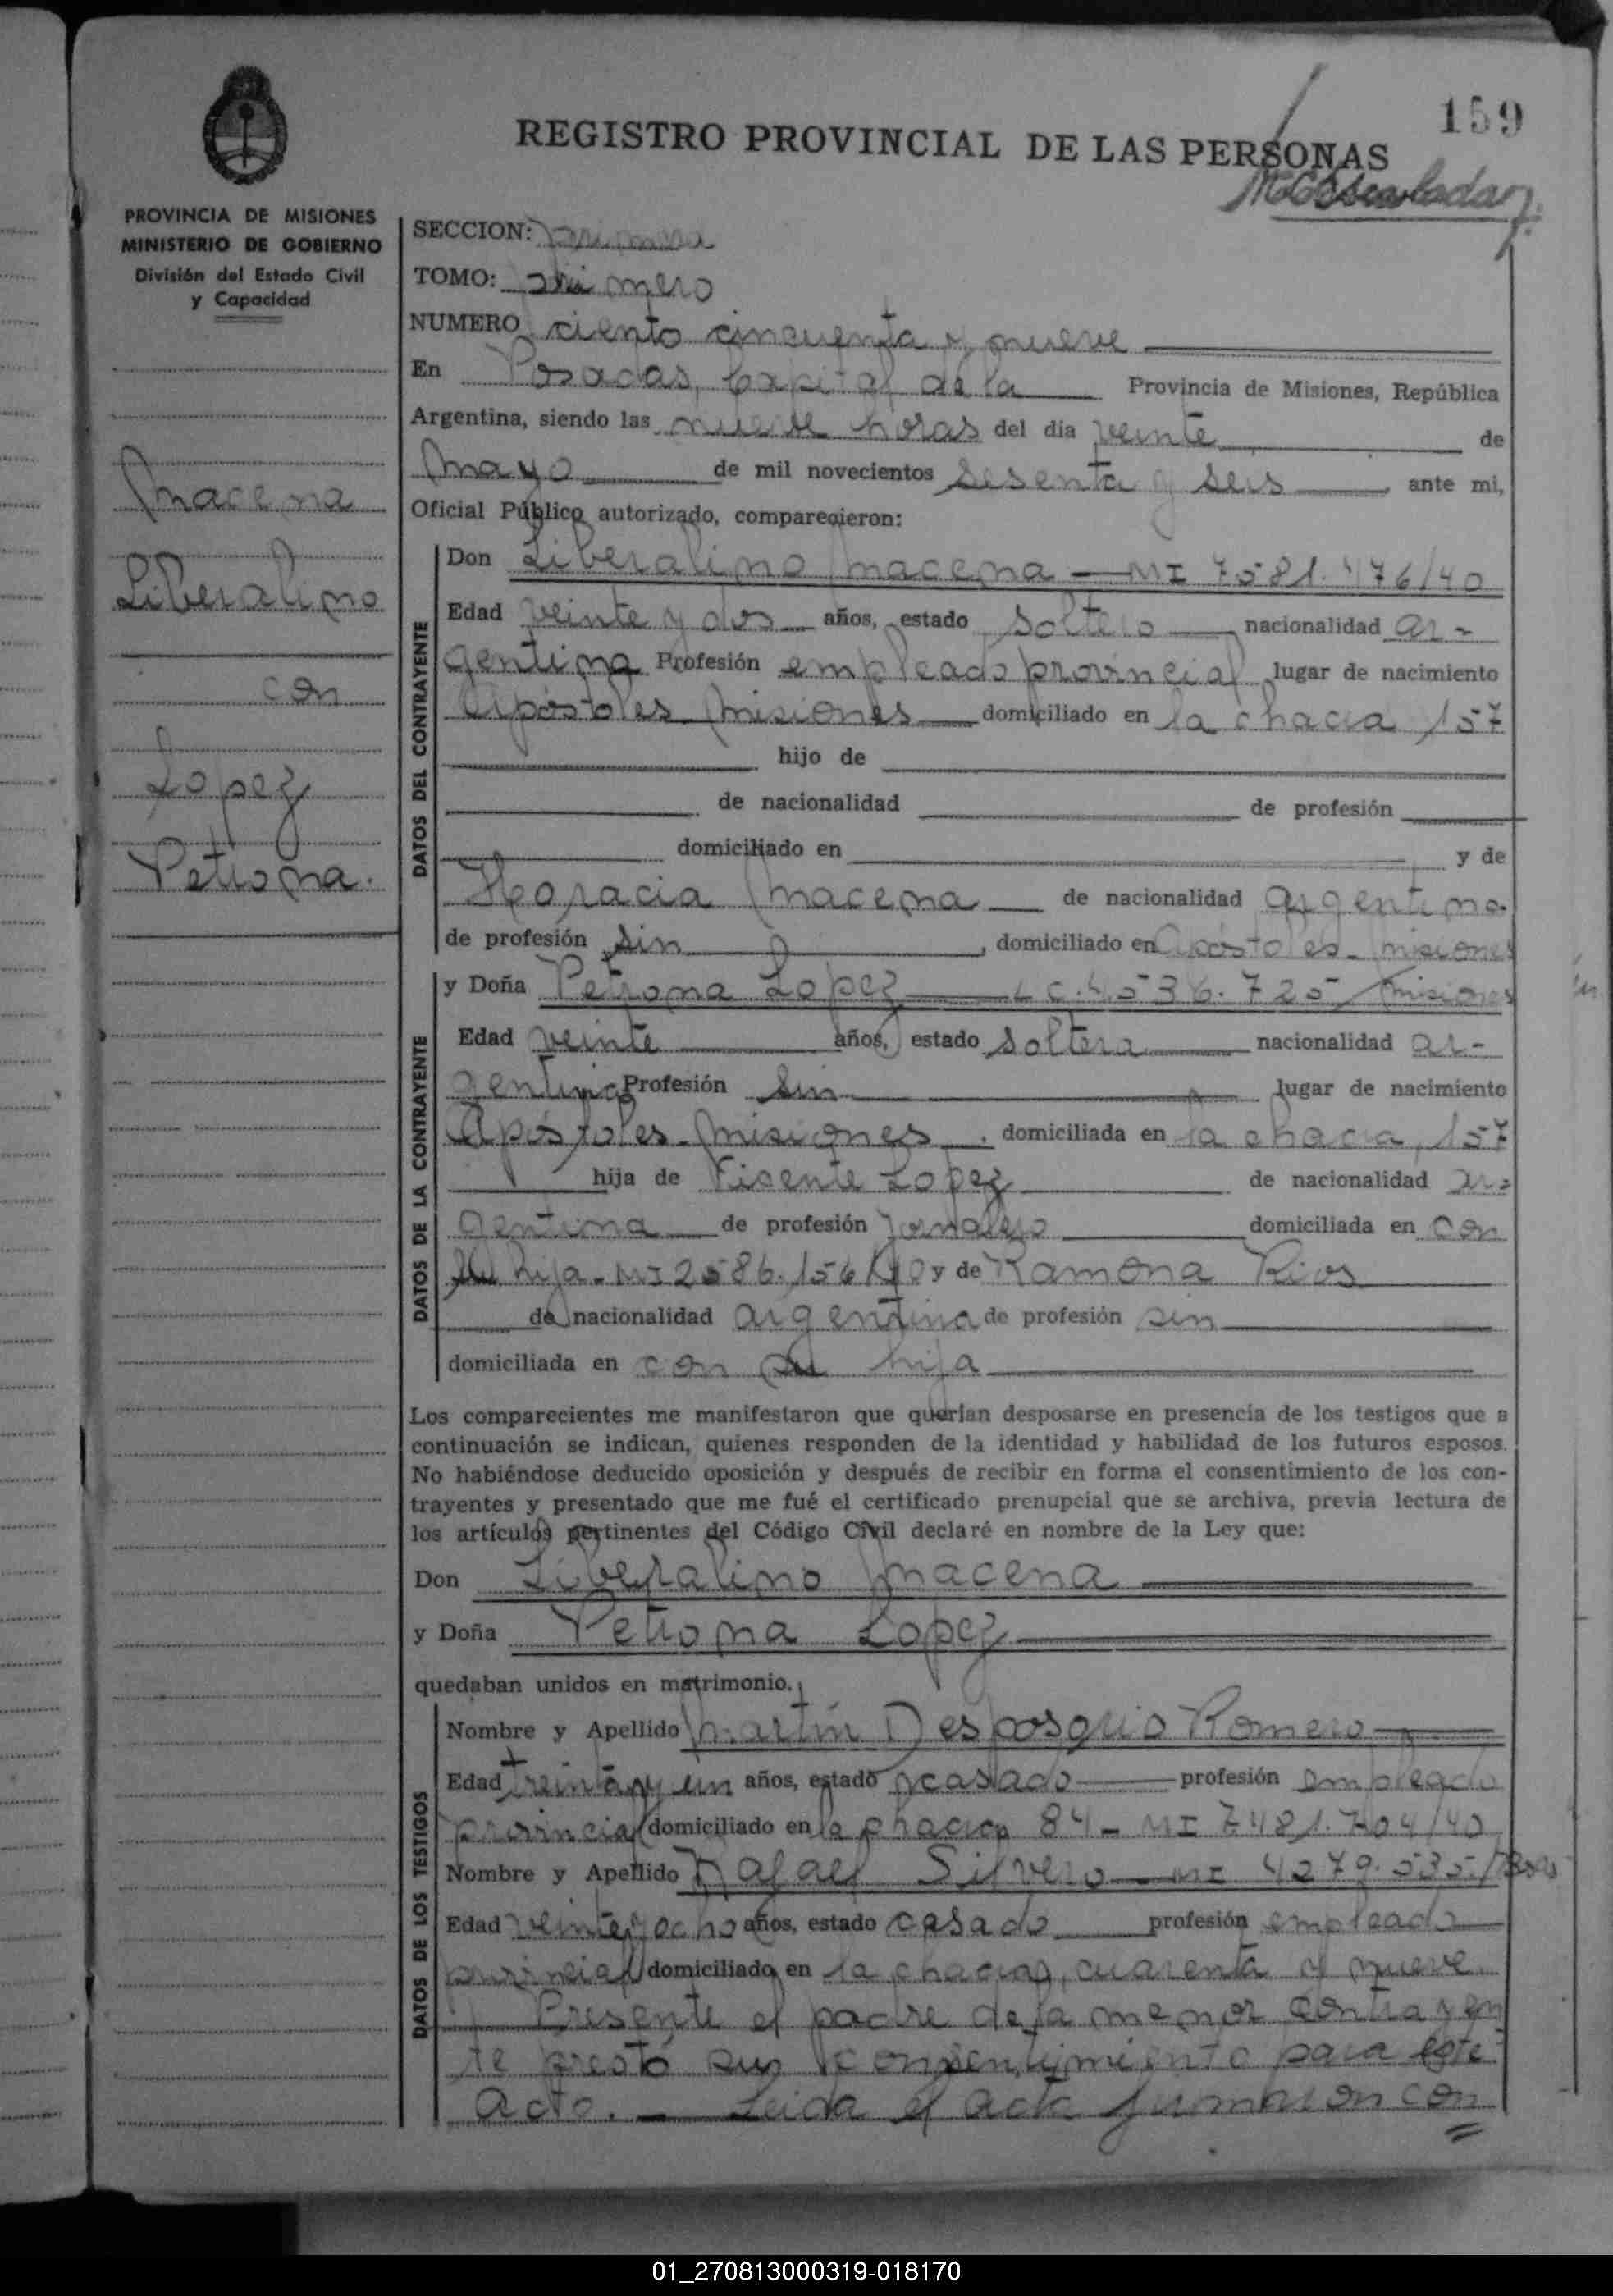 159
REGISTRO PROVINCIAL DE LAS PERSONAS
PROVINCIA DE MISIONES
MINISTERIO DE GOBIERNO
División del Estado Civil
y Capacidad
Macena
Liberalino
con
Lopez
Petrona.
SECCION: primera
TOMO: primero
NUMERO ciento cincuenta y nueve
En Posadas, Capital de la Provincia de Misiones, República
Argentina, siendo las nueve horas del día veinte de
Mayo de mil novecientos sesenta y seis ante mi,
Oficial Público autorizado, comparecieron:
DATOS DEL CONTRAYENTE
Don Liberalino Macena — MI 7581.476/40
Edad veinte y dos años, estado soltero nacionalidad ar-
gentina Profesión empleado provincial lugar de nacimiento
Apóstoles Misiones domiciliado en la chacra 157
hijo de
de nacionalidad de profesión
domiciliado en y de
Horacia Macena de nacionalidad argentina
de profesión sin, domiciliado en Apóstoles - Misiones
DATOS DE LA CONTRAYENTE
y Doña Petrona Lopez — L C. 4536.725 Misiones
Edad veinte años, estado soltera nacionalidad ar-
gentina Profesión sin lugar de nacimiento
Apóstoles - Misiones. domiciliada en la chacra, 157
hija de Vicente Lopez de nacionalidad ar-
gentina de profesión jornalero domiciliada en con
su hija - MI 2586.156/40 y de Ramona Rios
de nacionalidad argentina de profesión sin
domiciliada en con su hija
Los comparecientes me manifestaron que querían desposarse en presencia de los testigos que a
continuación se indican, quienes responden de la identidad y habilidad de los futuros esposos.
No habiéndose deducido oposición y después de recibir en forma el consentimiento de los con-
trayentes y presentado que me fué el certificado prenupcial que se archiva, previa lectura de
los artículos pertinentes del Código Civil declaré en nombre de la Ley que:
Don Liberalino Macena
y Doña Petrona Lopez
quedaban unidos en matrimonio.
DATOS DE LOS TESTIGOS
Nombre y Apellido Martín Romero
Edad treinta y un años, estado casado profesión empleado
provincial domiciliado en la chacra 84 - MI 7481.704/40
Nombre y Apellido Rafael Silvero — MI 4279.535/
Edad veinte y ocho años, estado casado profesión empleado
provincial domiciliado en la chacra, cuarenta y nueve.
Presente el padre de la menor contrayen
te prestó su consentimiento para este
acto. — Leida el acta firmaron con
01_270813000319-018170